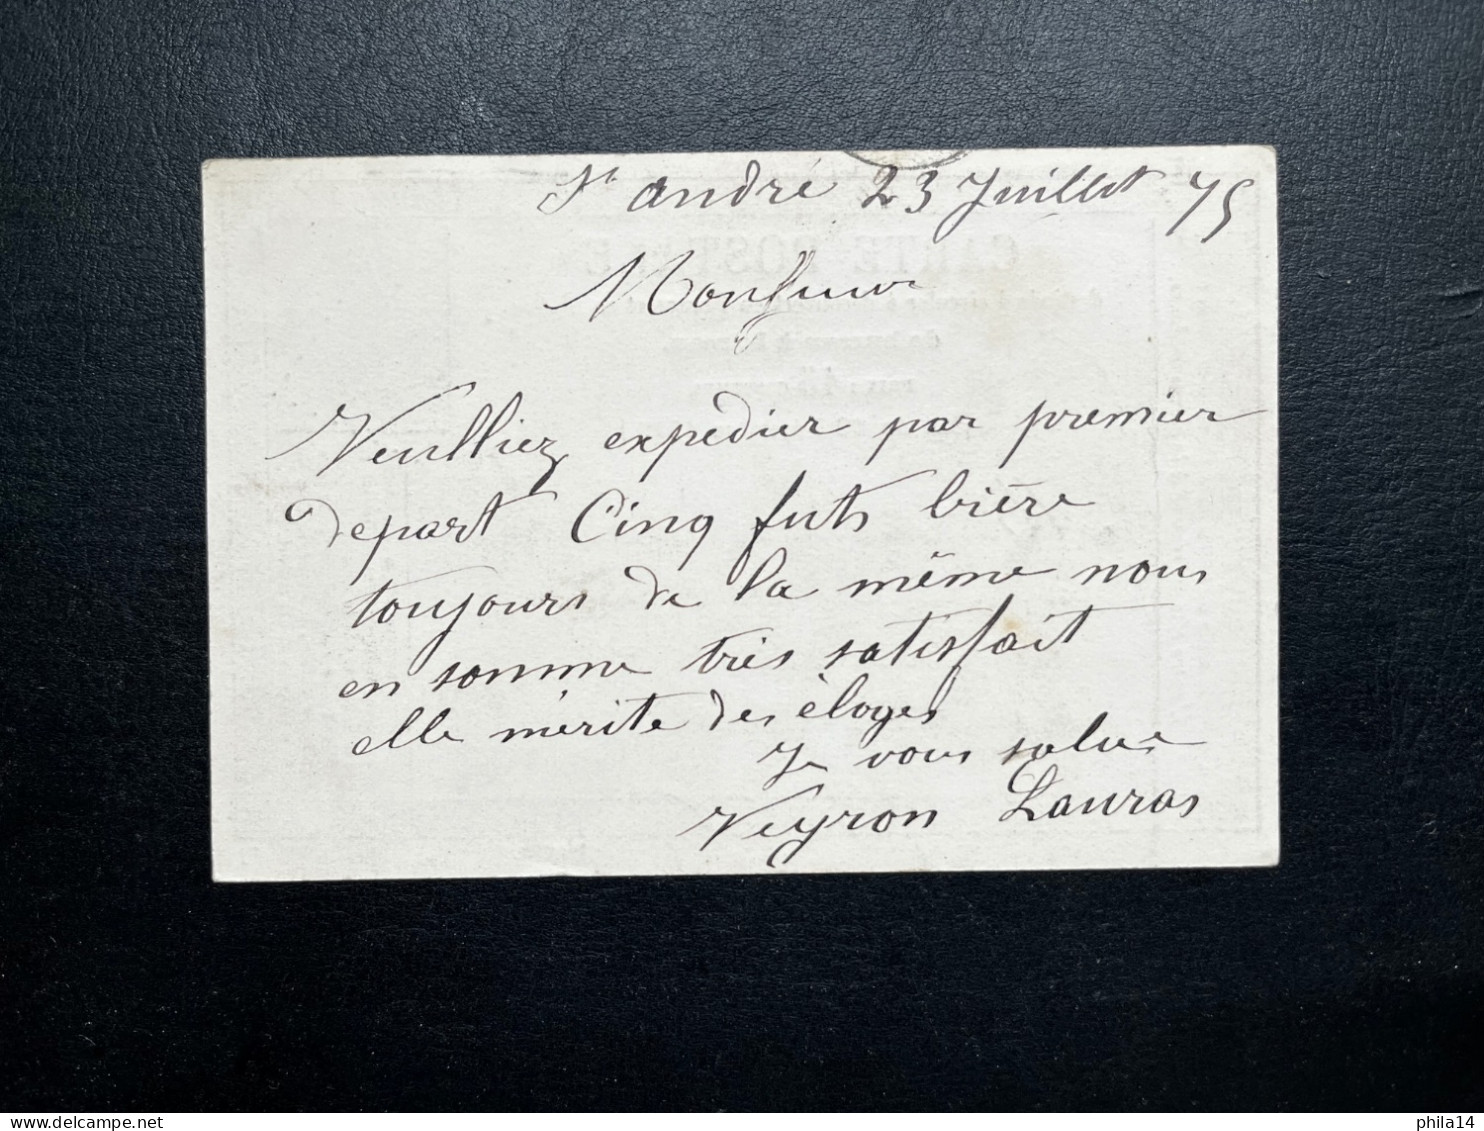 St andré 23 Juillet 75
Monsieur
Veulliez expedier par premier
depart Cinq futs bière
toujours de la même nous
en somme très satisfait
elle mérite des éloges
Je vous salue
Veyron Lauras
phila14